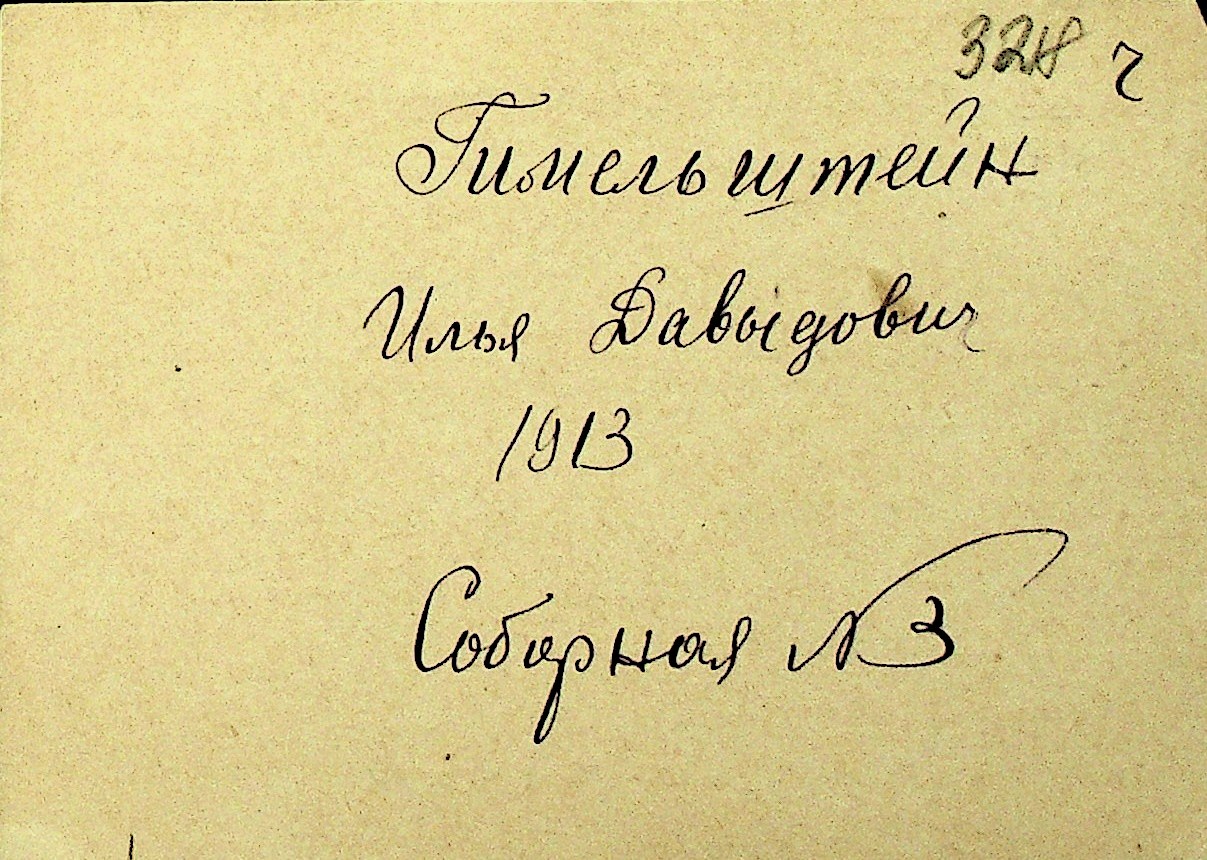 328 ч
Гимельштейн
Илья Давыдович
1913
Соборная №3